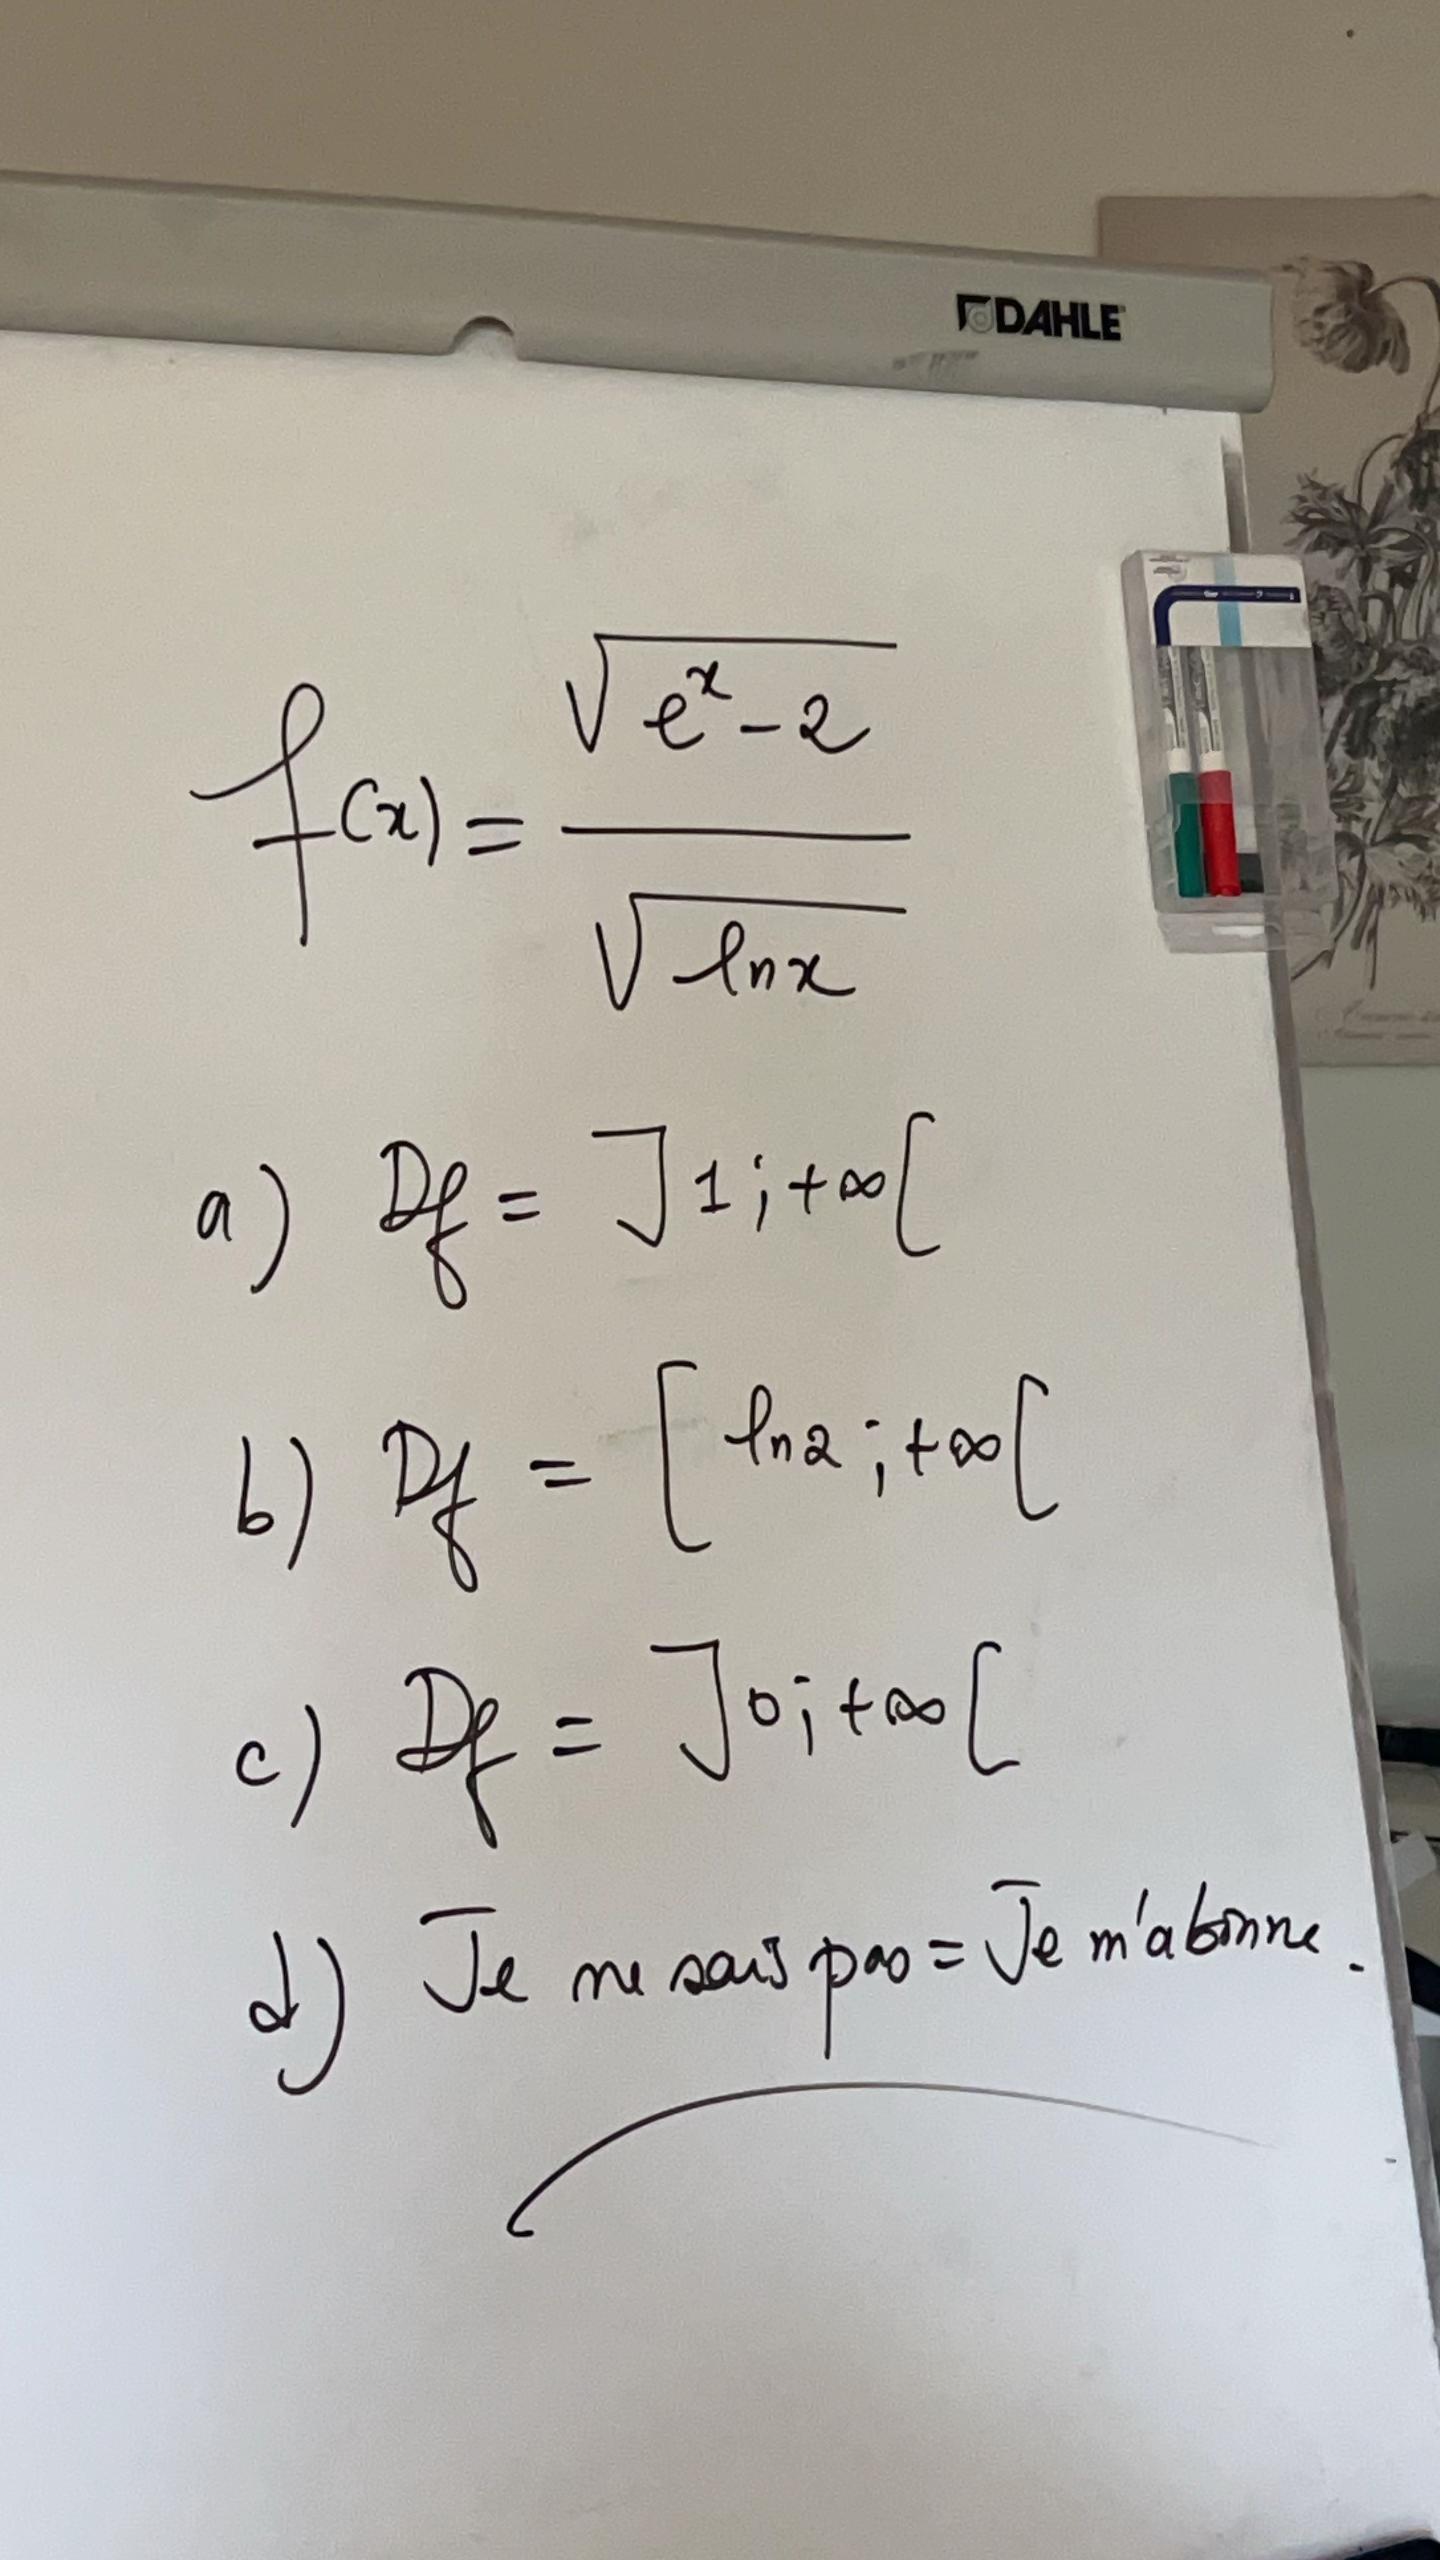 DAHLE
f(x) = √(e^x - 2) / √(ln x)
a) Df = ]1 ; +∞[
b) Df = [ln2 ; +∞[
c) Df = ]0 ; +∞[
d) Je ne sais pas = Je m'abonne.